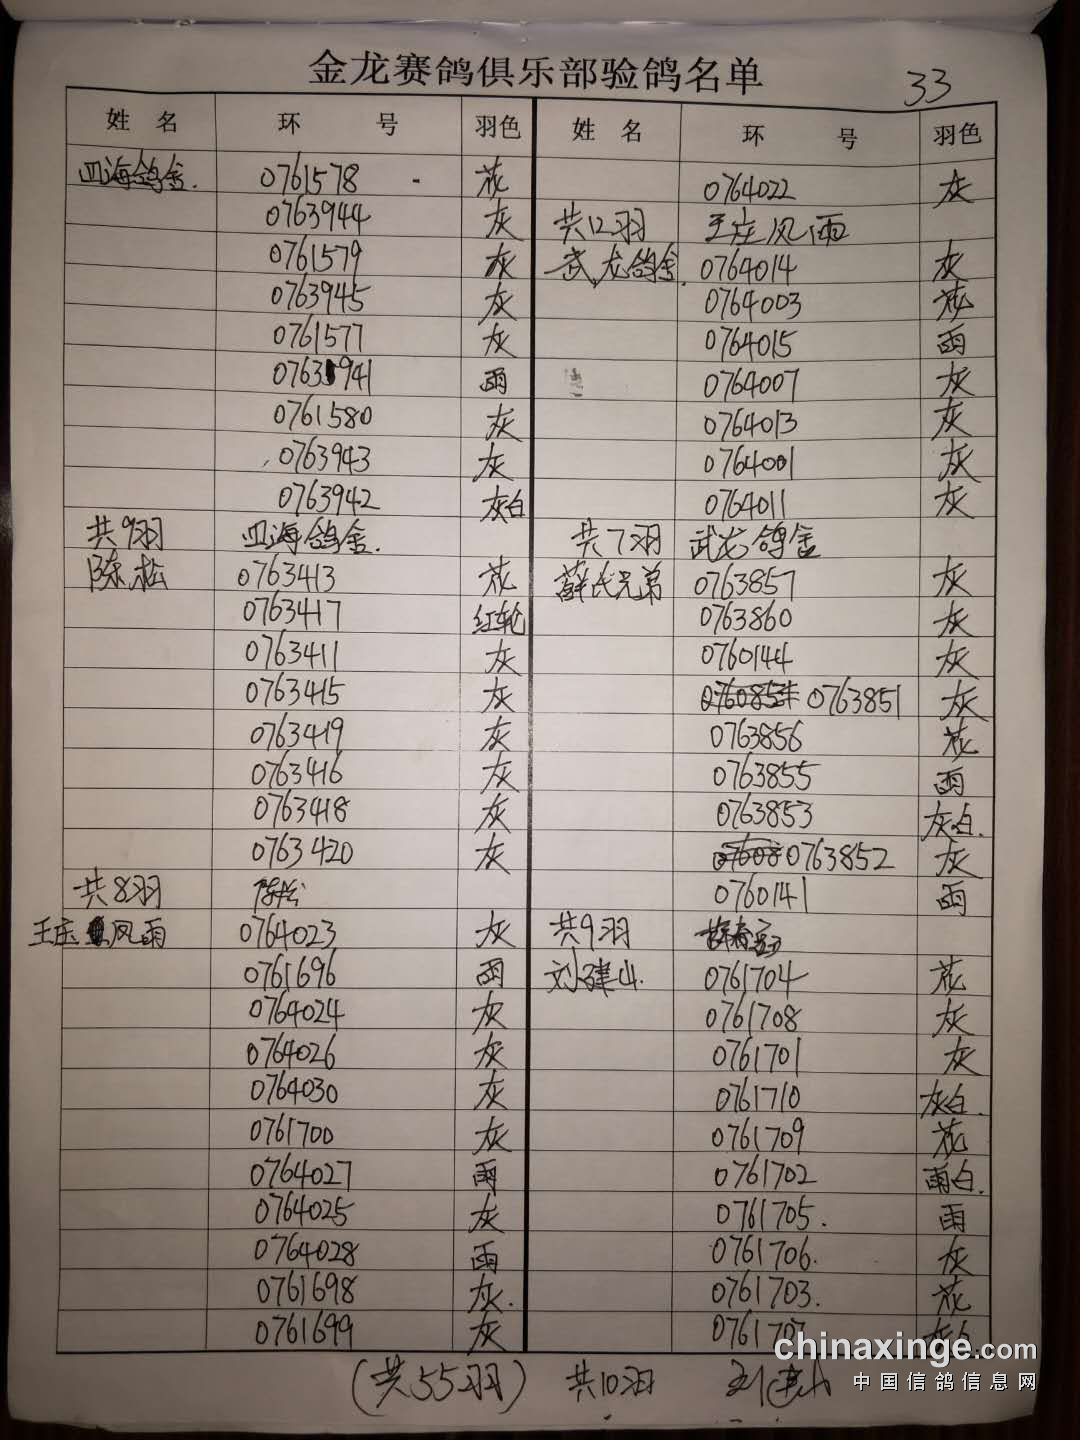 金龙赛鸽俱乐部验鸽名单
33
姓名 环号 羽色
四海鸽舍. 0761578 花
0763944 灰
0761579 灰
0763945 灰
0761577 灰
0763941 雨
0761580 灰
0763943 灰
0763942 灰白
共9羽 四海鸽舍.
陈松 0763413 花
0763417 红轮
0763411 灰
0763415 灰
0763419 灰
0763416 灰
0763418 灰
0763420 灰
共8羽 陈松
王庄风雨 0764023 灰
0761696 雨
0764024 灰
0764026 灰
0764030 灰
0761700 灰
0764027 雨
0764025 灰
0764028 雨
0761698 灰.
0761699 灰
姓名 环号 羽色
0764022 灰
共12羽 王庄风雨
武龙鸽舍. 0764014 灰
0764003 花
0764015 雨
0764007 灰
0764013 灰
0764001 灰
0764011 灰
共7羽 武龙鸽舍
薛氏兄弟 0763857 灰
0763860 灰
0760144 灰
0763851 灰
0763856 花
0763855 雨
0763853 灰白.
0763852 灰
0760141 雨
共9羽
刘建山. 0761704 花
0761708 灰
0761701 灰
0761710 灰白.
0761709 花
0761702 雨白.
0761705. 雨
0761706. 灰
0761703. 花
0761707 灰白
(共55羽) 共10羽 刘建山
chinaxinge.com
中国信鸽信息网